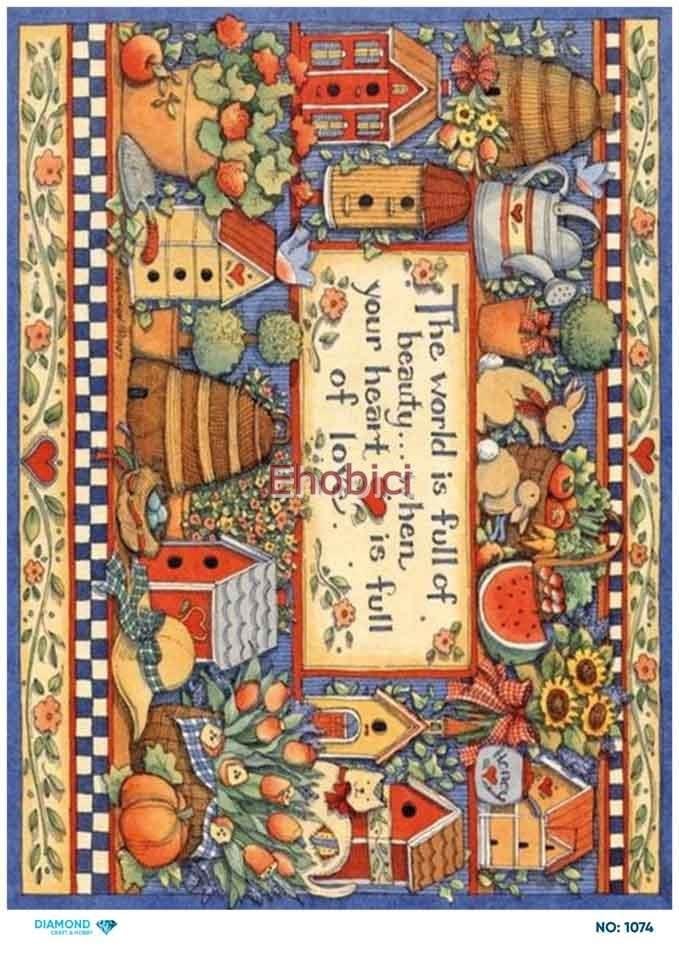 The world is full of
beauty... when
your heart is full
of love.
Honey
Ehobici
DIAMOND
CRAFT & HOBBY
NO: 1074